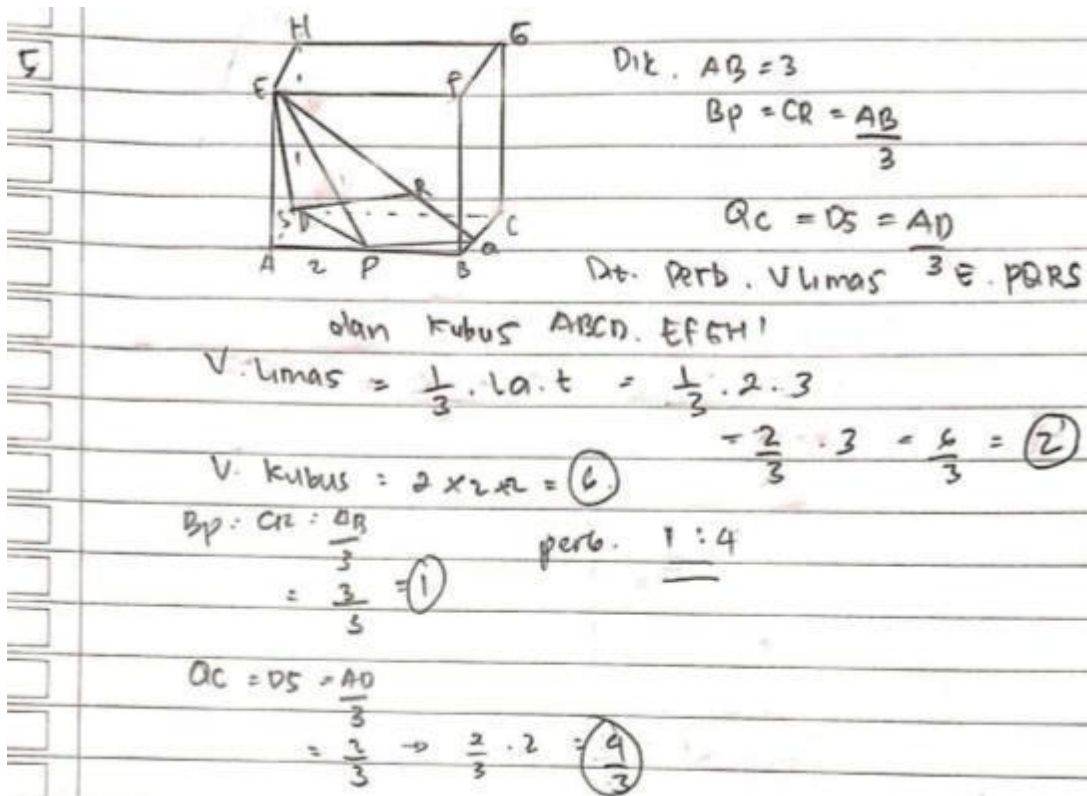 5
H G
E F
S D R C
A 2 P B Q
Dik. AB = 3
BP = CR = AB/3
QC = DS = AD/3
Dt. Perb. V limas E.PQRS
dan kubus ABCD.EFGH!
V. Limas = 1/3 . la . t = 1/3 . 2 . 3
= 2/3 . 3 = 6/3 = 2
V. Kubus : 2 x 2 x 2 = 6
BP : CR : AB/3
perb. 1 : 4
= 3/3 = 1
QC = DS = AD/3
= 2/3 → 2/3 . 2 = 4/3